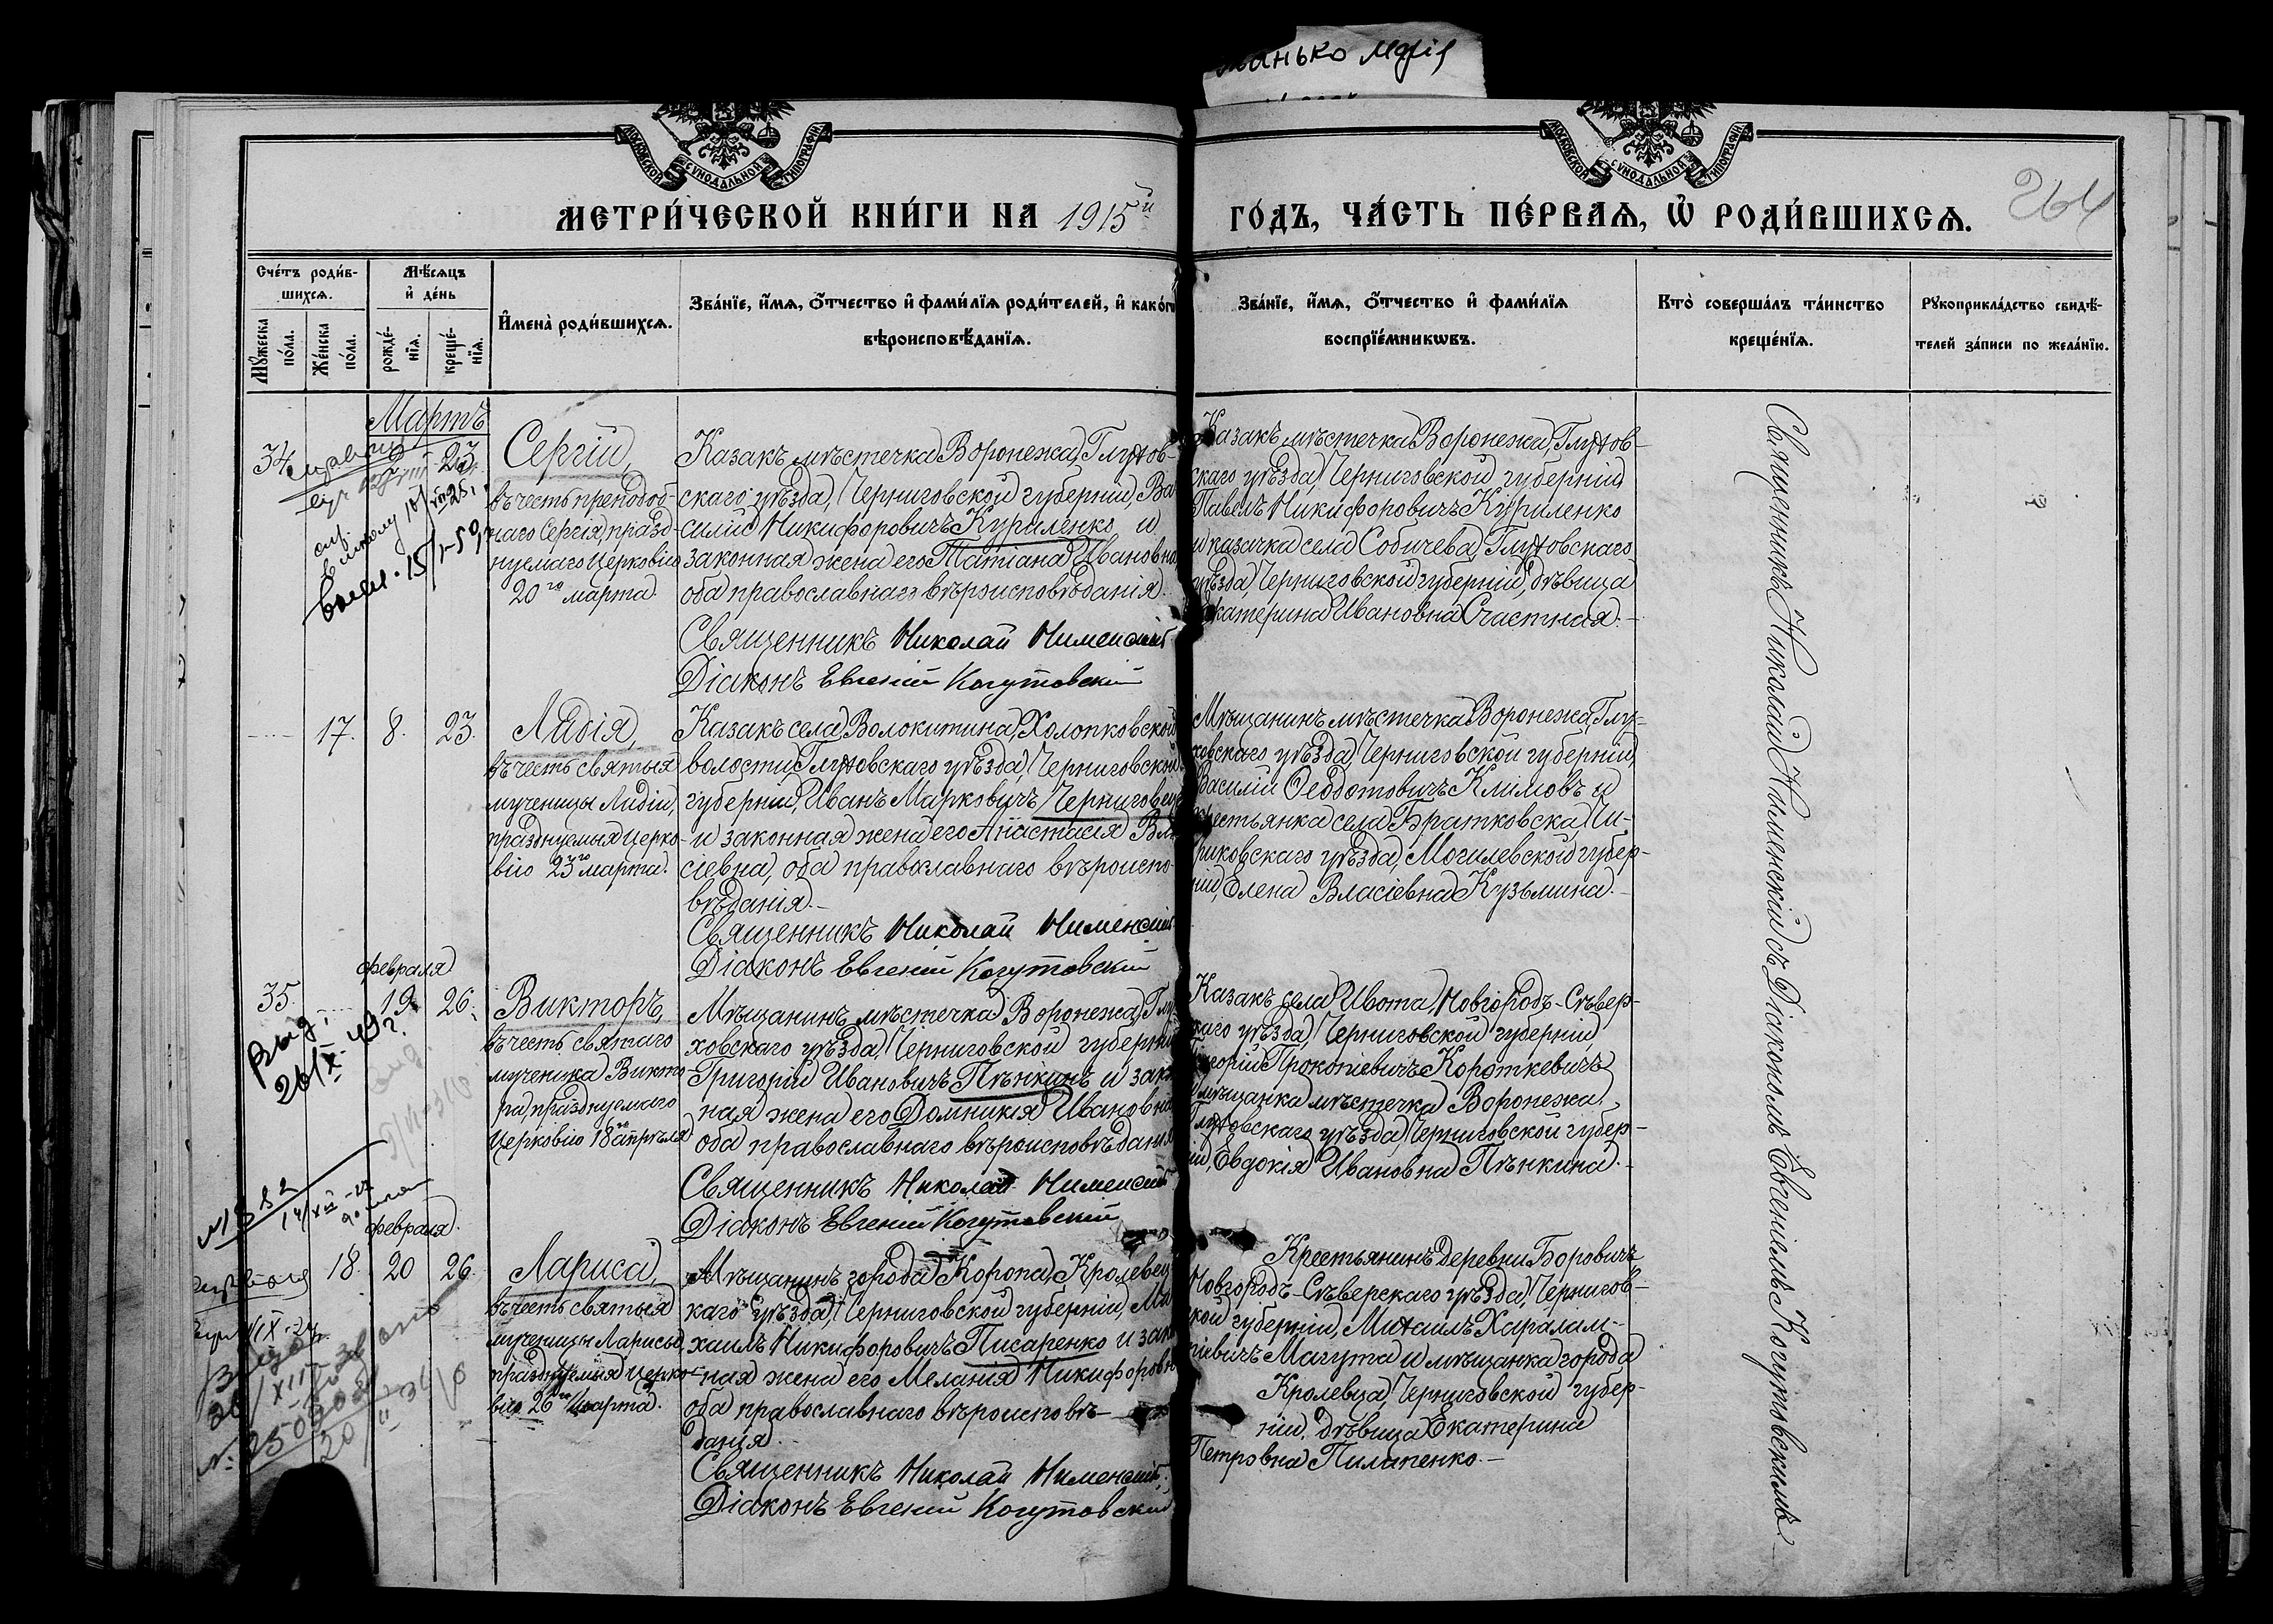 манько Марія
МОСКОВСКОЙ СѴНОДАЛЬНОЙ ТИПОГРАФІИ
МОСКОВСКОЙ СѴНОДАЛЬНОЙ ТИПОГРАФІИ
МЕТРИ́ЧЕСКОЙ КНИ́ГИ НА 1915й
ГО́ДЪ, ЧА́СТЬ ПЕ́РВАѦ, Ѽ РОДИ́ВШИХСѦ.
264
Сче́тъ роди́в-
шихсѧ.
Мꙋжеска
по́ла.
Же́нска
по́ла.
Мѣ́сѧцъ
и҆ де́нь
рожде́-
нїѧ.
креще́-
нїѧ.
И҆мена̀ роди́вшихсѧ.
Зва́нїе, и҆́мѧ, ѻ҆́тчество и҆ фами́лїѧ роди́телей, и҆ како́гѡ
вѣроисповѣ́данїѧ.
Зва́нїе, и҆́мѧ, ѻ҆́тчество и҆ фами́лїѧ
воспрїе́мникѡвъ.
Кто̀ соверша́лъ та́инство
креще́нїѧ.
Рꙋкоприкла́дство свидѣ́-
телей за́писи по жела́нїю.
Мартъ
34.
23.
Сергій,
въ честь преподоб-
наго Сергія, празд-
нуемаго Церковію
20го марта.
Казакъ мѣстечка Воронежа, Глухов-
скаго уѣзда, Черниговской губерніи, Ва-
силій Никифоровичъ Куриленко и
законная жена его Татіана Ивановна,
оба православнаго вѣроисповѣданія.
Священникъ Николай Нименскій
Діаконъ Евгеній Когутовскій
Казакъ мѣстечка Воронежа, Глухов-
скаго уѣзда, Черниговской губерніи,
Павелъ Никифоровичъ Куриленко
и казачка села Собичева, Глуховскаго
уѣзда, Черниговской губерніи, дѣвица
Екатерина Ивановна Счастная.-
17. 8. 23.
Лидія,
въ честь святыя
мученицы Лидіи,
празднуемыя Церко-
вію 23го марта.
Казакъ села Волокитина, Холопковской
волости, Глуховскаго уѣзда, Черниговской
губерніи, Иванъ Марковичъ Черниговец
и законная жена его Анастасія Вла-
сіевна, оба православнаго вѣроиспо-
вѣданія.-
Священникъ Николай Нименскій
Діаконъ Евгеній Когутовскій
Мѣщанинъ мѣстечка Воронежа, Глу-
ховскаго уѣзда, Черниговской губерніи,
Василій Ѳеодотовичъ Климовъ и
крестьянка села Братковска, Чи-
риковскаго уѣзда, Могилевской губер-
ніи, Елена Власіевна Кузьмина.-
февраля
35. 19. 26.
Выд.
26/X 49г.
Викторъ,
въ честь святаго
мученика Викто-
ра, празднуемаго
Церковію 18го апрѣля
Мѣщанинъ мѣстечка Воронежа, Глу-
ховскаго уѣзда, Черниговской губерніи
Григорій Ивановичъ Пѣнкинъ и закон-
ная жена его Домникія Ивановна
оба православнаго вѣроисповѣданія
Священникъ Николай Нименскій
Діаконъ Евгеній Когутовскій
Казакъ села Ивота, Новгородъ-Сѣвер-
скаго уѣзда, Черниговской губерніи,
Григорій Прокопіевичъ Короткевичъ
и мѣщанка мѣстечка Воронежа,
Глуховскаго уѣзда, Черниговской губер-
ніи, Евдокія Ивановна Пѣнкина.-
№1882
февраля.
18. 20 26.
Лариса,
въ честь святыя
мученицы Ларисы,
празднуемыя Церко-
вію 26го марта.
Мѣщанинъ города Коропа, Кролевец-
каго уѣзда, Черниговской губерніи, Ми-
хаилъ Никифоровичъ Писаренко и закон-
ная жена его Меланія Никифоровна
оба православнаго вѣроисповѣ-
данія.
Священникъ Николай Нименскій
Діаконъ Евгеній Когутовскій
Крестьянинъ деревни Боровичъ
Новгородъ-Сѣверскаго уѣзда, Чернигов-
ской губерніи, Михаилъ Харалам-
піевичъ Магута и мѣщанка города
Кролевца, Черниговской губер-
ніи, дѣвица Екатерина
Петровна Пилипенко.-
Священникъ Николай Нименскій съ Діакономъ Евгеніемъ Когутовскимъ.